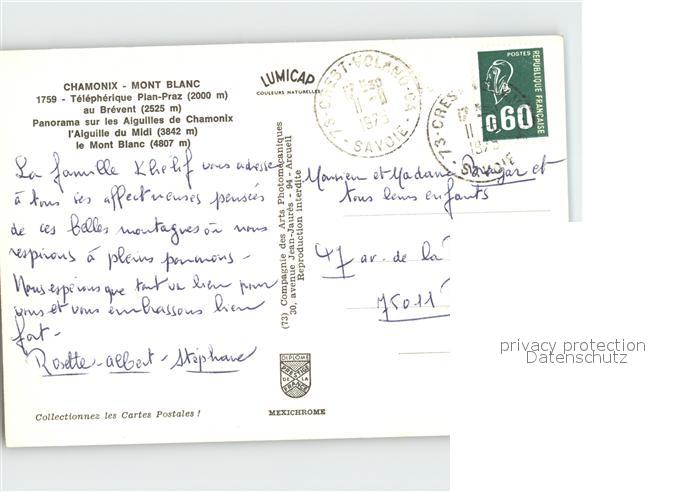 CHAMONIX - MONT BLANC
1759 - Téléphérique Plan-Praz (2000 m)
au Brévent (2525 m)
Panorama sur les Aiguilles de Chamonix
l'Aiguille du Midi (3842 m)
le Mont Blanc (4807 m)
La famille Khelif vous adresse
à tous ses affectueuses pensées
de ces belles montagnes où nous
respirons à pleins poumons -
Nous espérons que tout va bien pour
vous et vous embrassons bien
fort -
Rosette - Albert - Stéphane
Collectionnez les Cartes Postales !
LUMICAP
COULEURS NATURELLES
(73) Compagnie des Arts Photomécaniques
30, avenue Jean-Jaurès - 94 - Arcueil
Reproduction interdite
DIPLOME
PRESTIGE
DE LA
FRANCE
MEXICHROME
73 - CREST-VOLAND
11 - 11
1975
SAVOIE
73 - CREST
11
1975
SAVOIE
POSTES
REPUBLIQUE FRANÇAISE
0,60
Monsieur et Madame et
tous leurs enfants
47 av. de la
75011
privacy protection
Datenschutz